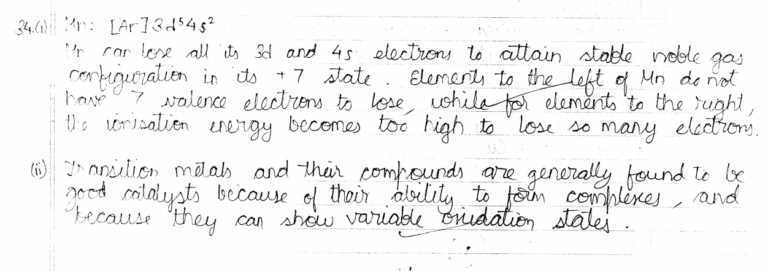 34.(i) Mn: [Ar] 3d⁵4s²
Mn can lose all its 3d and 4s electrons to attain stable noble gas
configuration in its +7 state. Elements to the left of Mn do not
have 7 valence electrons to lose, while for elements to the right,
the ionisation energy becomes too high to lose so many electrons.
(ii) Transition metals and their compounds are generally found to be
good catalysts because of their ability to form complexes, and
because they can show variable oxidation states.